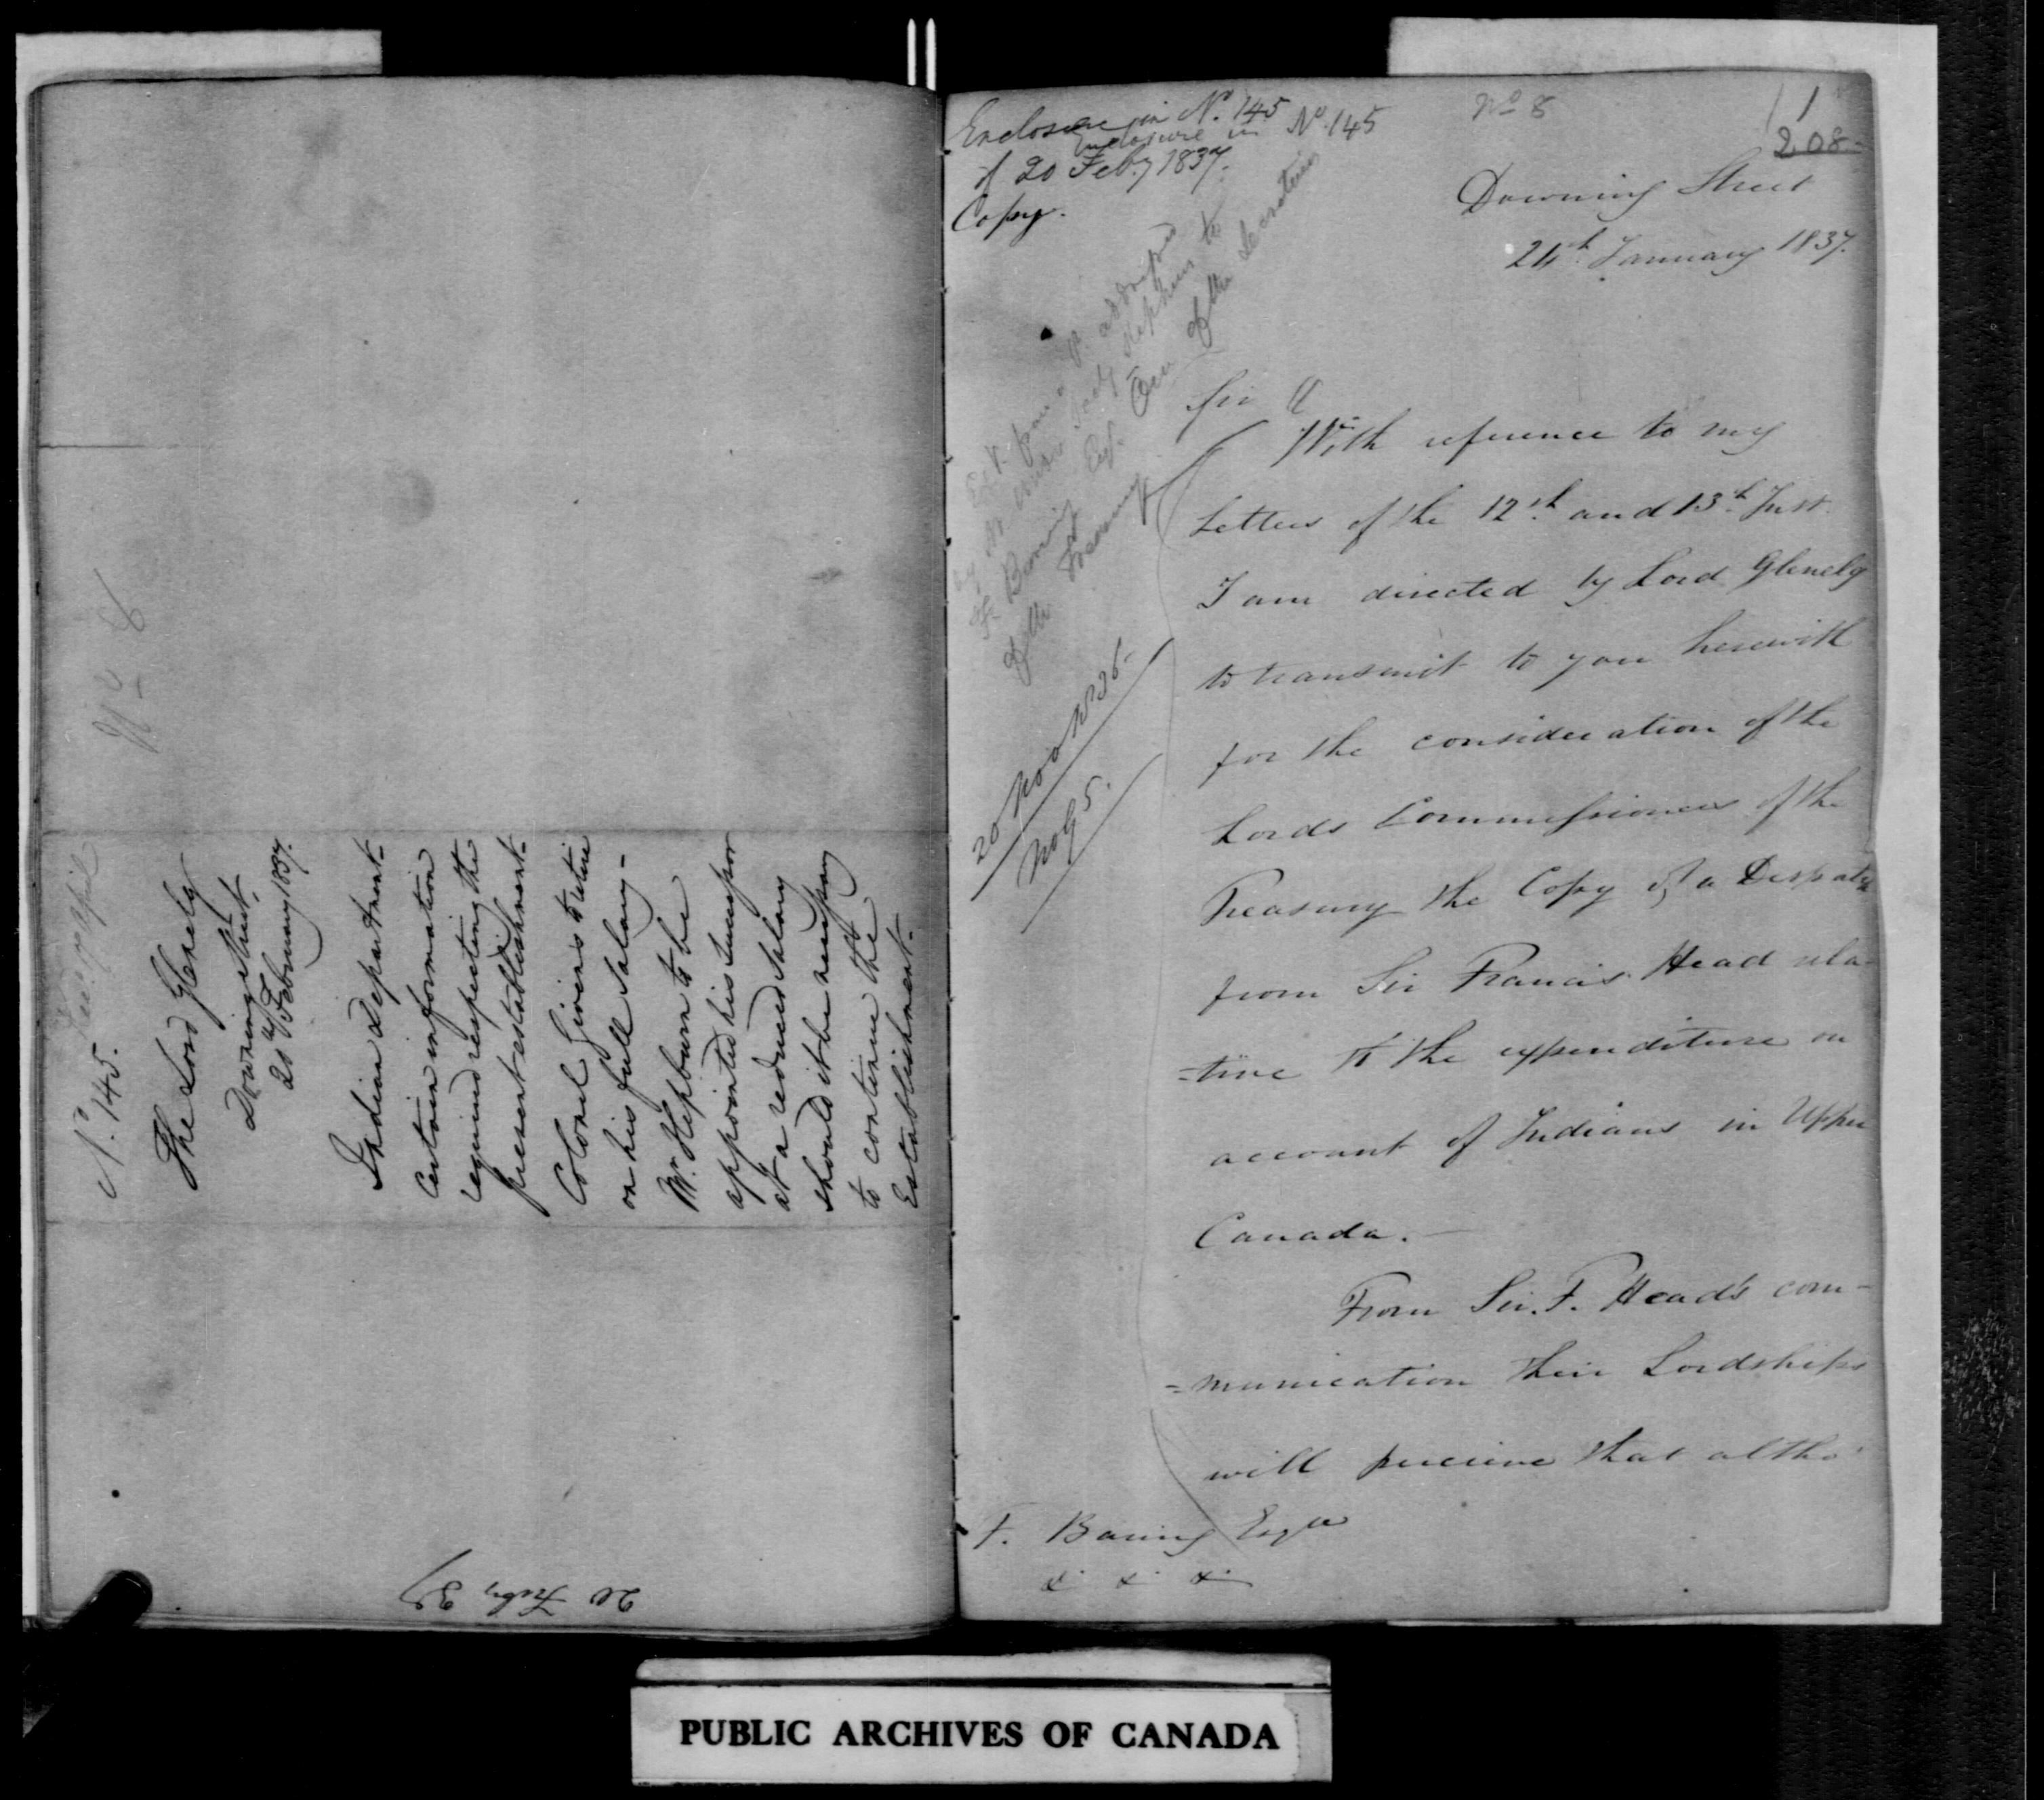 Nº 8
Nº. 145. Rec. 17 April
The Lord Glenelg
Downing Street,
20th February 1837.
Indian Department-
Certain information
required respecting the
present establishment-
Colonel Givens to retire
on his full Salary-
Mr. Hepburn to be
appointed his Successor
at a reduced Salary
should it be necessary
to continue the
Establishment-
20 Feby 37
Enclosure in Nº. 145
Enclosure in Nº 145
of 20 Feby 1837.
Copy.
Nº 8
1
208
Downing Street
24th January 1837.
by Mr. Under Secy Stephen to
F. Baring Esq. One of the Secretaries
of the Treasury
20 Nov 1836-
No 95.
Sir
With reference to my
Letters of the 12th and 13th Inst.
I am directed by Lord Glenelg
to transmit to you herewith
for the consideration of the
Lords Commissioners of the
Treasury the Copy of a Despatch
from Sir Francis Head rela-
=tive to the expenditure on
account of Indians in Upper
Canada.-
From Sir. F. Head's com-
=munication their Lordships
will perceive that altho'
F. Baring Esqre
&. &. &.
PUBLIC ARCHIVES OF CANADA